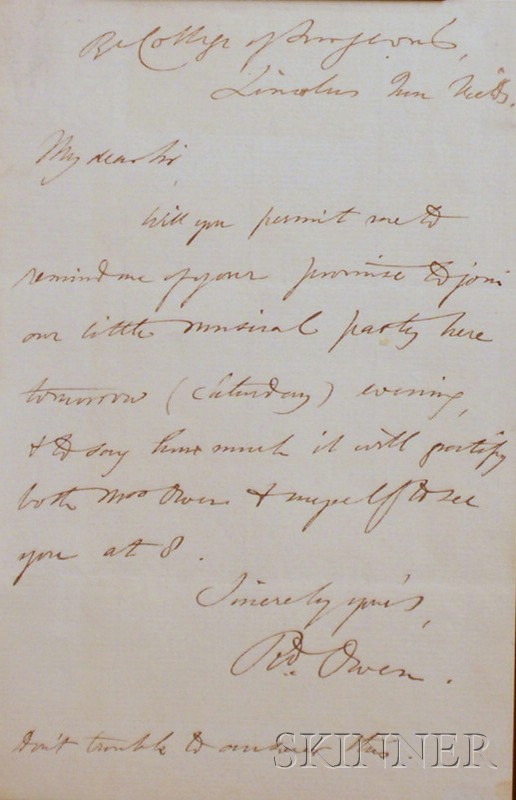 Rl College of Surgeons,
Lincolns Inn Fields.
My dear Sir
Will you permit me to
remind me of your promise to join
our little musical party here
tomorrow (Saturday) evening,
& to say how much it will gratify
both Mrs Owen & myself to see
you at 8.
Sincerely yours,
Rd. Owen.
Don't trouble to answer this.
SKINNER